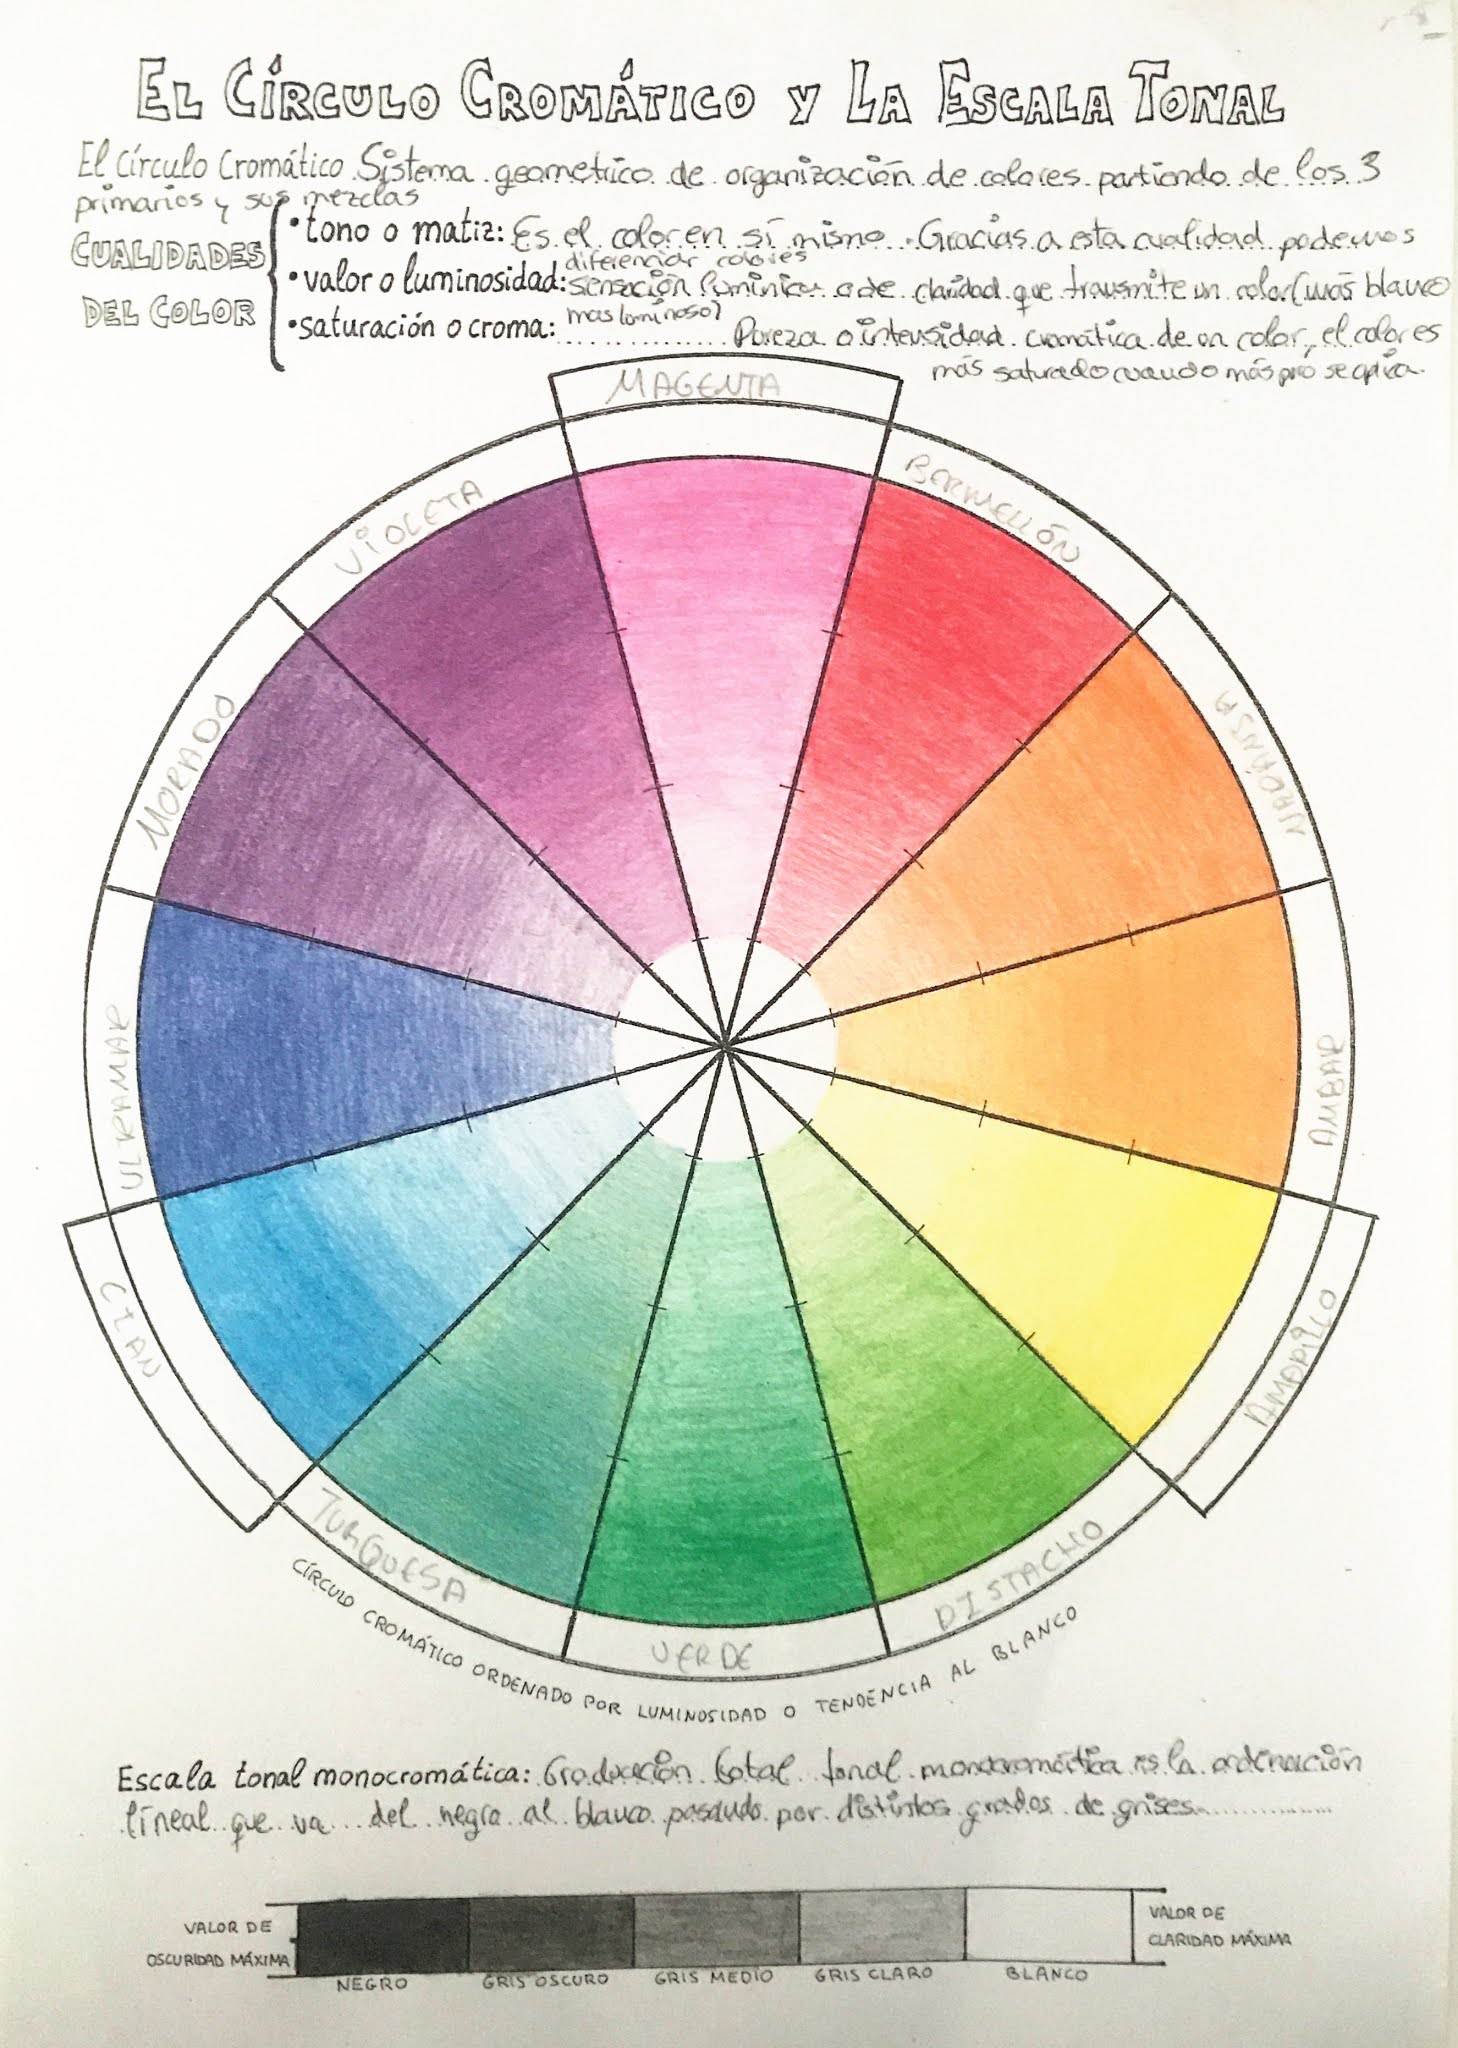 EL CÍRCULO CROMÁTICO Y LA ESCALA TONAL
El Círculo Cromático Sistema geometrico de organización de colores partiendo de los 3
primarios y sus mezclas
CUALIDADES
DEL COLOR
• tono o matiz: Es el color en sí mismo. Gracias a esta cualidad podemos
diferenciar colores
• valor o luminosidad: sensación lumínica o de claridad que transmite un color (más blanco
mas luminoso)
• saturación o croma: Pureza o intensidad cromática de un color, el color es
más saturado cuando más
MAGENTA
BERMELLÓN
ÁMBAR
AMARILLO
PISTACHO
VERDE
TURQUESA
CIAN
ULTRAMAR
MORADO
VIOLETA
CÍRCULO CROMÁTICO ORDENADO POR LUMINOSIDAD O TENDENCIA AL BLANCO
Escala tonal monocromática: Graduación total tonal monocromática es la ordenación
líneal que va del negro al blanco pasando por distintos grados de grises
VALOR DE
OSCURIDAD MÁXIMA
NEGRO
GRIS OSCURO
GRIS MEDIO
GRIS CLARO
BLANCO
VALOR DE
CLARIDAD MÁXIMA